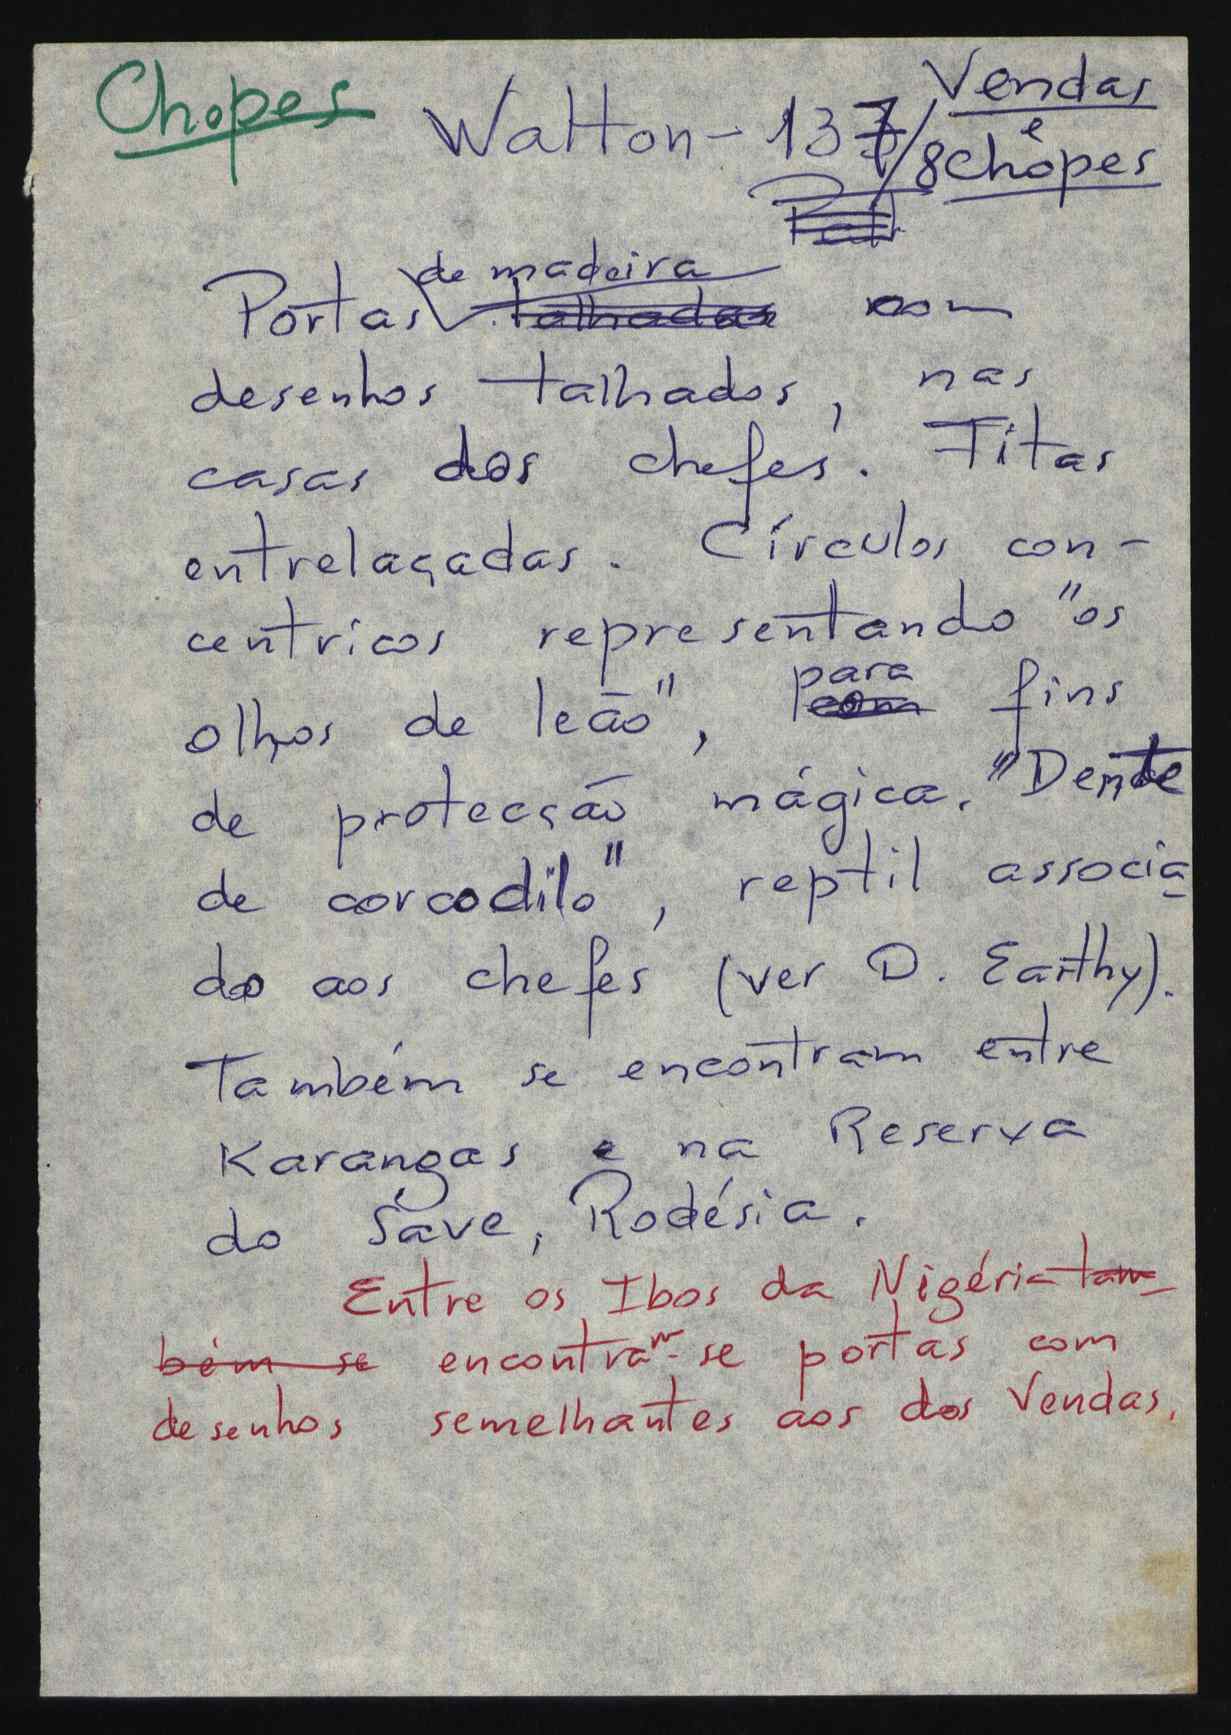 Chopes
Vendas
Watton - 137/8
e
chopes
Portas de madeira talhadas com
desenhos talhados, nas
casas dos chefes. Fitas
entrelaçadas. Círculos con-
centricos representando "os
olhos de leão", para com fins
de protecção mágica. "Dente
de corcodilo", reptil associa
do aos chefes (ver D. Earthy).
Também se encontram entre
Karangas e na Reserva
do Save, Rodésia.
Entre os Ibos da Nigéria tam-
bém se encontram-se portas com
desenhos semelhantes aos dos Vendas.